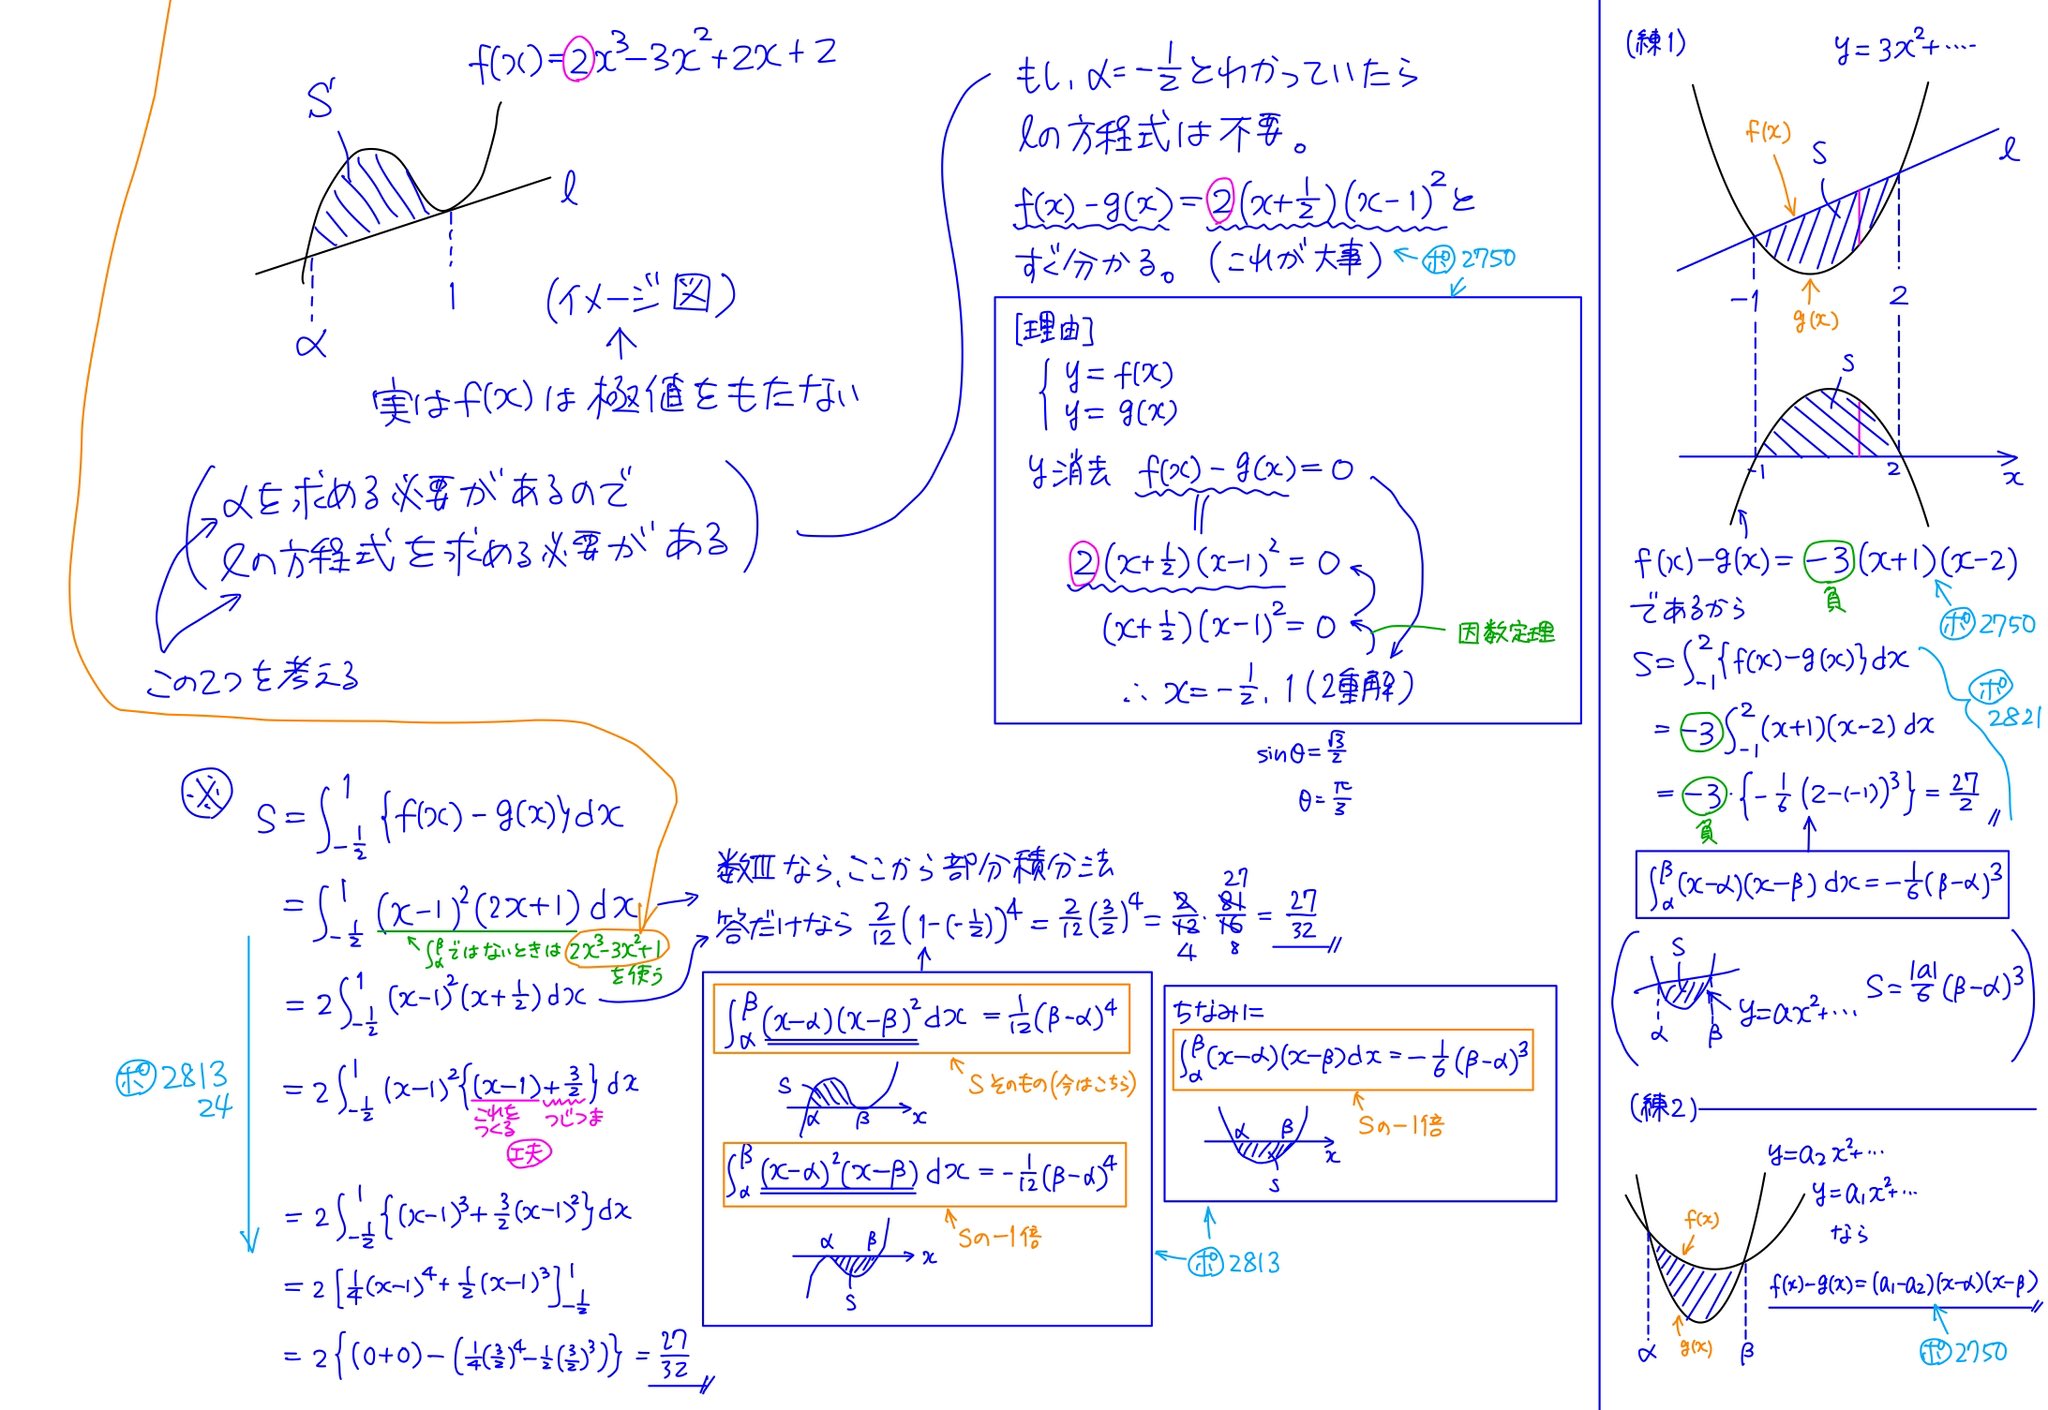 f(x)=2x³-3x²+2x+2
S
l
1
α
(イメージ図)
実はf(x)は極値をもたない
αを求める必要があるので
lの方程式を求める必要がある
この2つを考える
もし、α=-1/2とわかっていたら
lの方程式は不要。
f(x)-g(x)=2(x+1/2)(x-1)²と
すぐ分かる。(これが大事) ←ポ2750
[理由]
{ y=f(x)
y=g(x)
y消去 f(x)-g(x)=0
||
2(x+1/2)(x-1)²=0
(x+1/2)(x-1)²=0
因数定理
∴x=-1/2, 1(2重解)
sinθ=√3/2
θ=π/3
※
S=∫_{-1/2}^{1}{f(x)-g(x)}dx
=∫_{-1/2}^{1}(x-1)²(2x+1)dx
∫_α^βではないときは 2x³-3x²+1
を使う
=2∫_{-1/2}^{1}(x-1)²(x+1/2)dx
=2∫_{-1/2}^{1}(x-1)²{(x-1)+3/2}dx
これを
つくる
つじつま
工夫
=2∫_{-1/2}^{1}{(x-1)³+3/2(x-1)²}dx
=2[1/4(x-1)⁴+1/2(x-1)³]_{-1/2}^{1}
=2{(0+0)-(1/4(3/2)⁴-1/2(3/2)³)}=27/32
ポ2813
24
数Ⅲなら、ここから部分積分法
答だけなら 2/12(1-(-1/2))⁴=2/12(3/2)⁴=2/12・81/16=27/32
27
4
8
∫_α^β(x-α)(x-β)²dx=1/12(β-α)⁴
Sそのもの(今はこちら)
S
α β x
∫_α^β(x-α)²(x-β)dx=-1/12(β-α)⁴
Sの-1倍
α β x
S
ちなみに
∫_α^β(x-α)(x-β)dx=-1/6(β-α)³
Sの-1倍
α β x
S
ポ2813
(練1)
y=3x²+‥‥
f(x)
S
l
-1
2
g(x)
S
-1
2
x
f(x)-g(x)=-3(x+1)(x-2)
負
であるから
ポ2750
S=∫_{-1}^{2}{f(x)-g(x)}dx
ポ
2821
=-3∫_{-1}^{2}(x+1)(x-2)dx
=-3・{-1/6(2-(-1))³}=27/2
負
∫_α^β(x-α)(x-β)dx=-1/6(β-α)³
S
α β
y=ax²+…
S=|a|/6(β-α)³
(練2)
y=a₂x²+…
y=a₁x²+…
なら
f(x)
g(x)
α
β
f(x)-g(x)=(a₁-a₂)(x-α)(x-β)
ポ2750